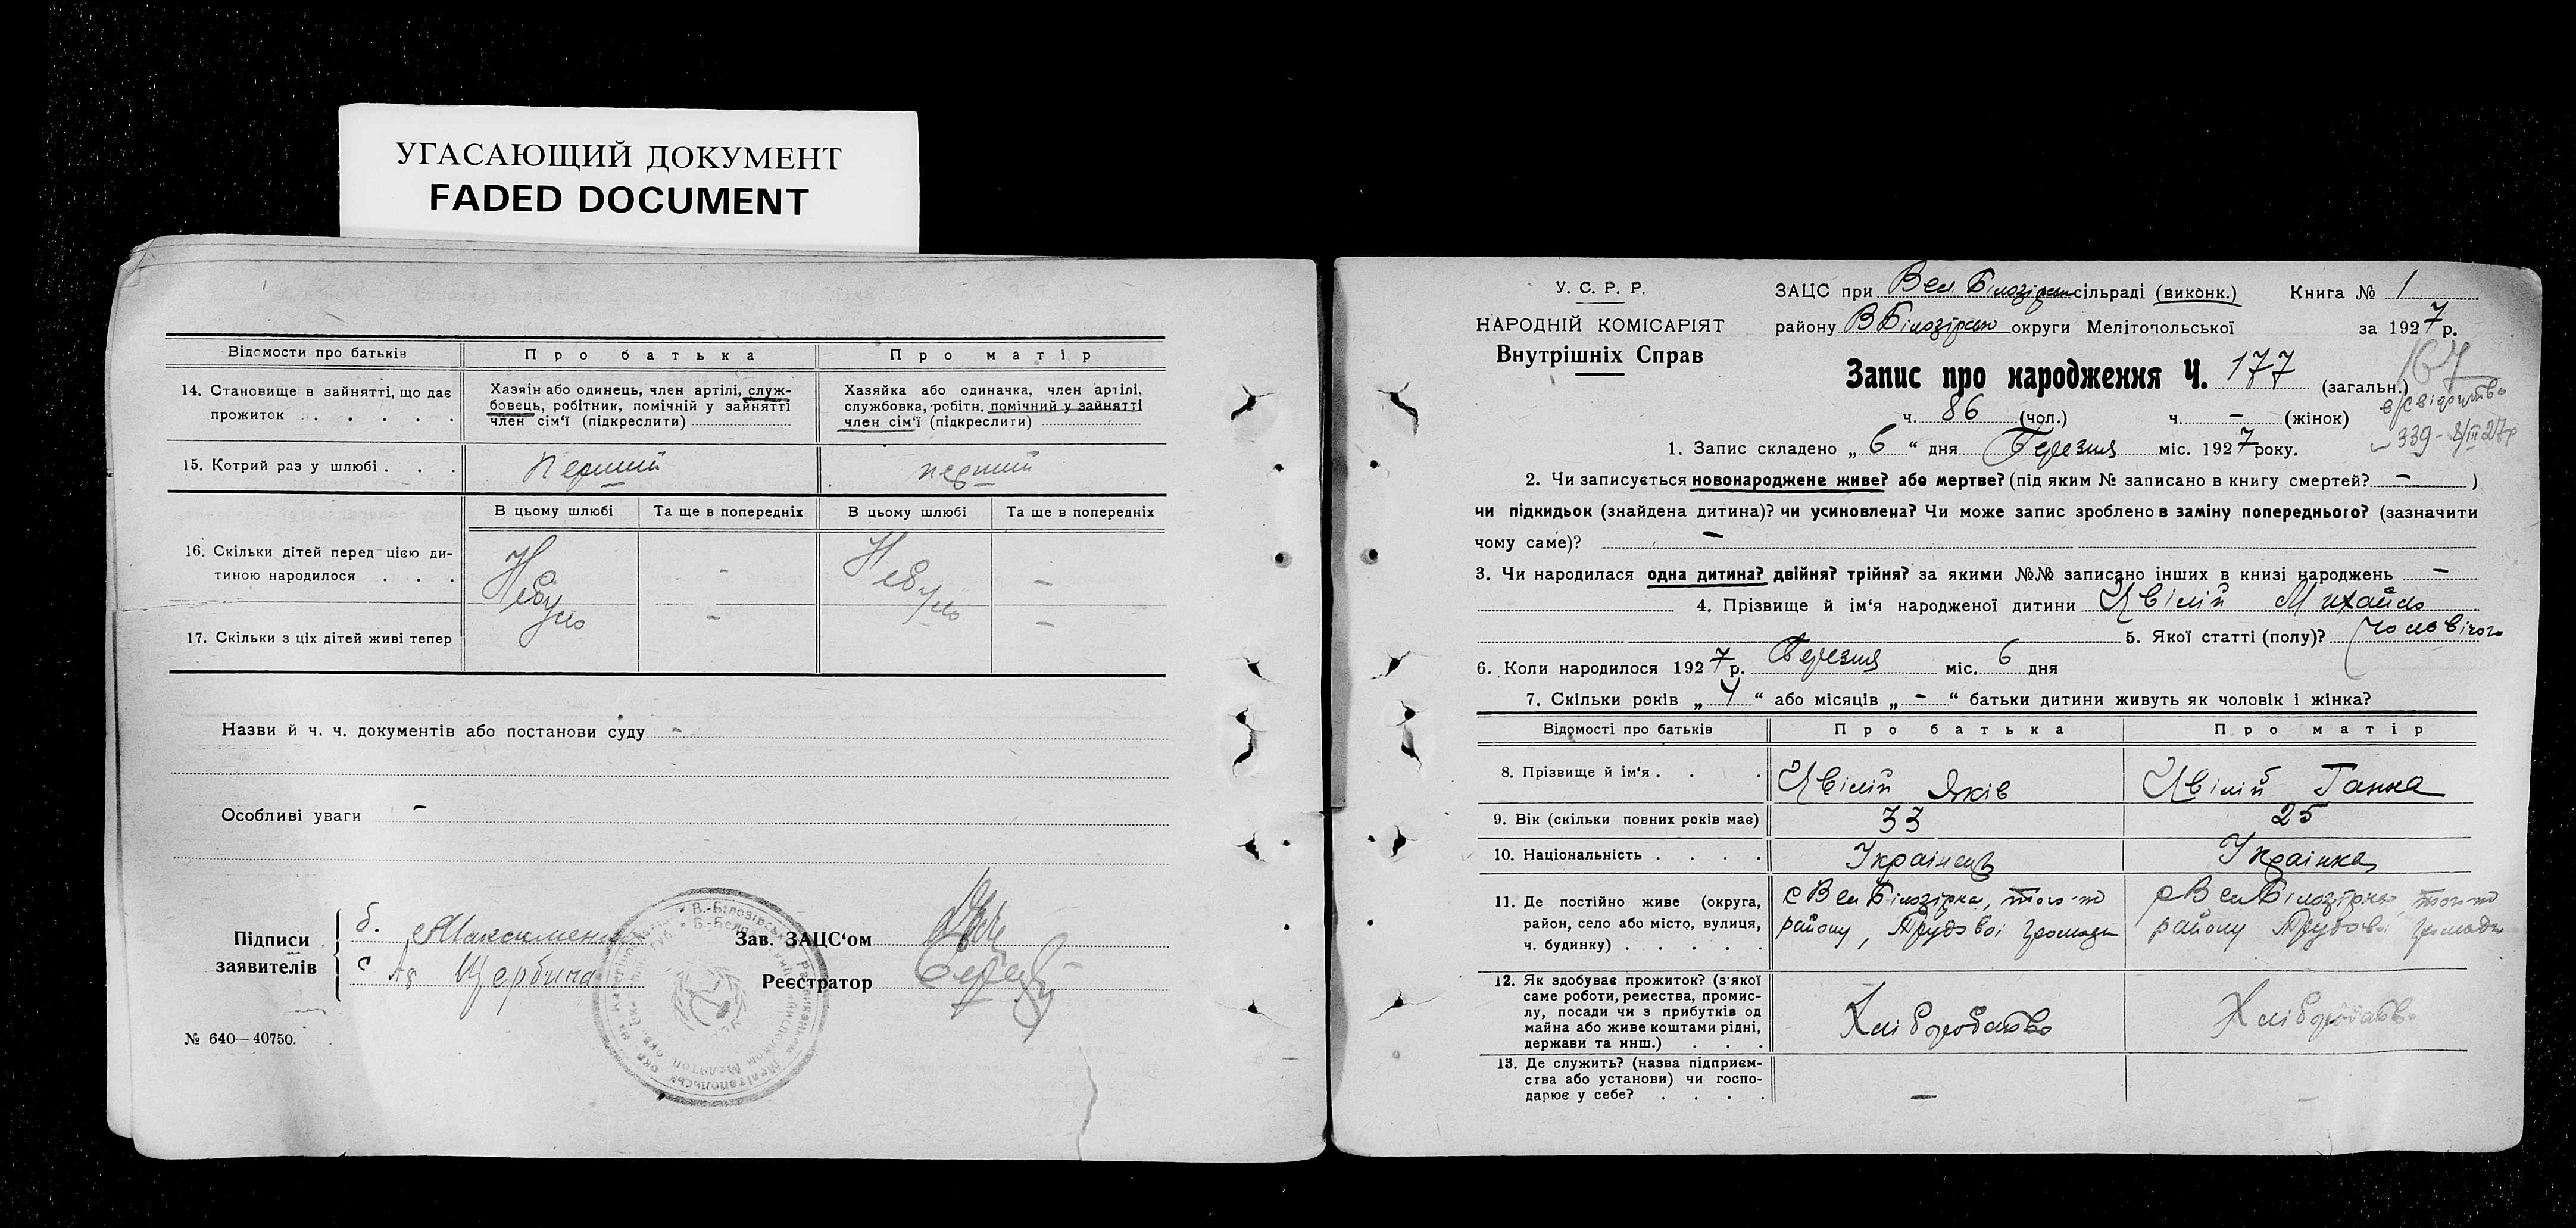 УГАСАЮЩИЙ ДОКУМЕНТ
FADED DOCUMENT
Відомости про батьків
Про батька
Про матір
14. Становище в зайнятті, що дає
прожиток . . . . .
Хазяін або одинець, член артілі, служ-
бовець, робітник, помічній у зайнятті
член сім'ї (підкреслити)
Хазяйка або одиначка, член артілі,
службовка, робітн. помічний у зайнятті
член сім'ї (підкреслити)
15. Котрий раз у шлюбі . . .
перший
перший
В цьому шлюбі
Та ще в попередніх
В цьому шлюбі
Та ще в попередніх
16. Скільки дітей перед цією ди-
тиною народилося . . .
Небуло
-
Небуло
-
17. Скільки з ціх дітей живі тепер
-
-
Назви й ч. ч. документів або постанови суду -
Особливі уваги -
Підписи
заявителів
б.
с
Щербина
Зав. ЗАЦС'ом
Реєстратор
№ 640—40750.
У. С. Р. Р.
НАРОДНІЙ КОМІСАРІЯТ
Внутрішніх Справ
ЗАЦС при Вел Білозірск сільраді (виконк.) Книга № 1
району ВБілозірск округи Мелітопольської за 1927 р.
Запис про народження Ч. 177 (загальн.)
167
ч. 86 (чол.) ч. - (жінок)
339 - 8/III 27р
1. Запис складено „ 6 “ дня Березня міс. 1927 року.
2. Чи записується новонароджене живе? або мертве? (під яким № записано в книгу смертей? - )
чи підкидьок (знайдена дитина)? чи усиновлена? Чи може запис зроблено в заміну попереднього? (зазначити
чому саме)? -
3. Чи народилася одна дитина? двійня? трійня? за якими №№ записано інших в книзі народжень -
4. Прізвище й ім'я народженої дитини Цвілій Михайло
5. Якої статті (полу)? Чоловічого
6. Коли народилося 1927 р. Березня міс. 6 дня
7. Скільки років „ 4 “ або місяців „ - “ батьки дитини живуть як чоловік і жінка?
Відомості про батьків
Про батька
Про матір
8. Прізвище й ім'я . . .
Цвілій Яків
Цвілій Ганна
9. Вік (скільки повних років має)
33
25
10. Національність . . . .
Украінець
Украінка
11. Де постійно живе (округа,
район, село або місто, вулиця,
ч. будинку) . . . . .
с Вел Білозірка, того-то
району, Трудовоі громади
с Вел Білозірка того-то
району Трудовоі громади
12. Як здобуває прожиток? (з якої
саме роботи, ремества, промис-
лу, посади чи з прибутків од
майна або живе коштами рідні,
держави та инш.) . . .
Хліборобство
Хліборобство
13. Де служить? (назва підприєм-
ства або установи) чи госпо-
дарює у себе? . . . .
-
-